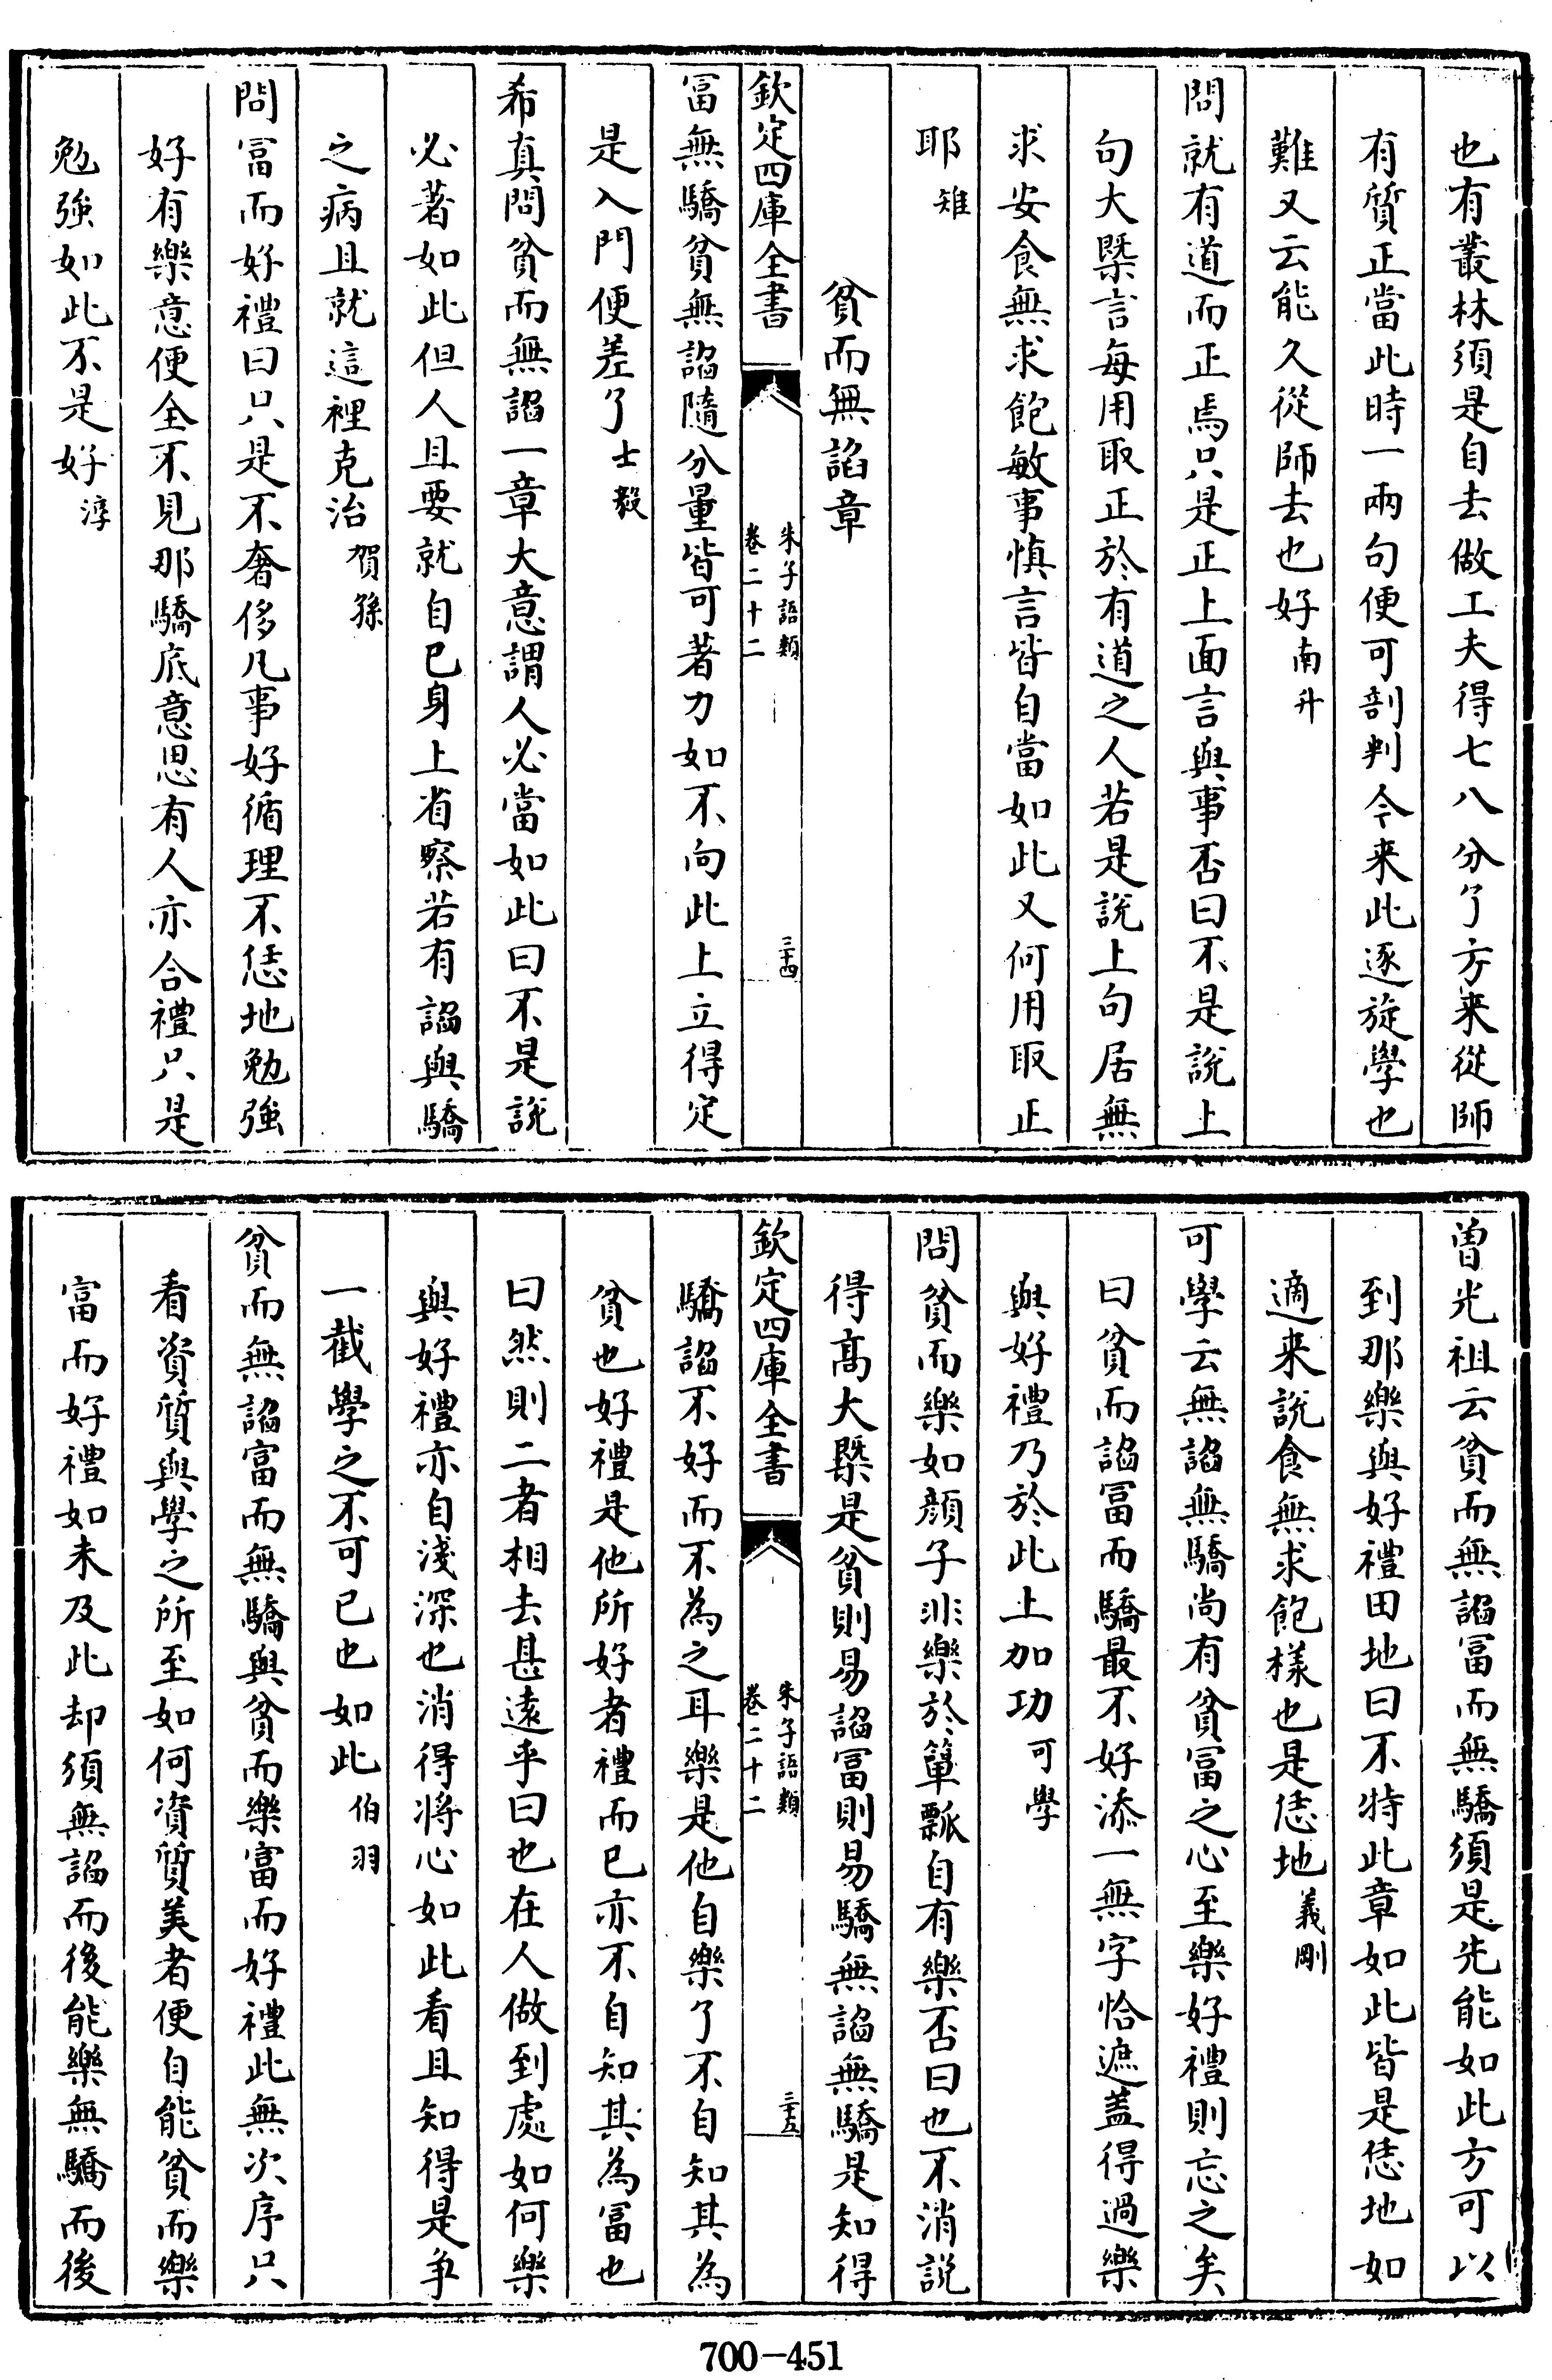 也有叢林須是自去做工夫得七八分了方来從師
有質正當此時一兩句便可剖判今来此逐旋學也
難又云能久從師去也好南升
問就有道而正焉只是正上面言與事否曰不是說上
句大槩言每用取正於有道之人若是說上句居無
求安食無求飽敏事慎言皆自當如此又何用取正
耶雉
貧而無諂章
欽定四庫全書
朱子語類
卷二十二
三十四
冨無驕貧無諂隨分量皆可著力如不向此上立得定
是入門便差了士毅
希真問貧而無諂一章大意謂人必當如此曰不是說
必著如此但人且要就自已身上省察若有諂與驕
之病且就這裡克治賀孫
問冨而好禮曰只是不奢侈凡事好循理不恁地勉強
好有樂意便全不見那驕底意思有人亦合禮只是
勉強如此不是好淳
曾光祖云貧而無諂冨而無驕須是先能如此方可以
到那樂與好禮田地曰不特此章如此皆是恁地如
適来說食無求飽樣也是恁地義剛
可學云無諂無驕尚有貧冨之心至樂好禮則忘之矣
曰貧而諂冨而驕最不好添一無字恰遮蓋得過樂
與好禮乃於此上加功可學
問貧而樂如顔子非樂於簞瓢自有樂否曰也不消說
得髙大槩是貧則易諂冨則易驕無諂無驕是知得
欽定四庫全書
朱子語類
卷二十二
三十五
驕諂不好而不為之耳樂是他自樂了不自知其為
貧也好禮是他所好者禮而已亦不自知其為冨也
曰然則二者相去甚遠乎曰也在人做到處如何樂
與好禮亦自淺深也消得将心如此看且知得是争
一截學之不可已也如此伯羽
貧而無諂富而無驕與貧而樂富而好禮此無次序只
看資質與學之所至如何資質美者便自能貧而樂
富而好禮如未及此却須無諂而後能樂無驕而後
700-451